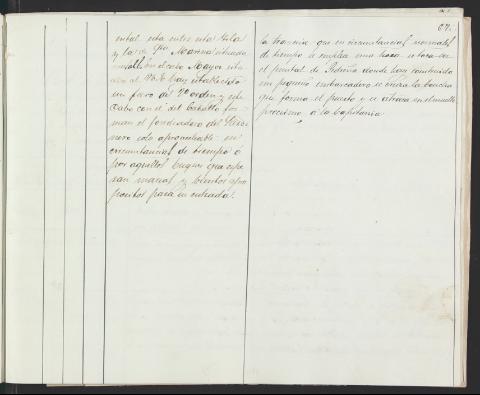 67.
ental esta entre esta Isla
y la de Sta Marina situada
en el cabo Mayor situa
do al N.E. hay establecido
un faro de 1º orden y este
Cabo con el del Caballo for
man el fondeadero del
nero solo aprovechable en
circunstancias de tiempo ó
por aquellos buques que espe
ran mareas y vientos apro
positos para su entrada.
la travesia que en circunstancias normales
de tiempo se emplea una hora
el puntal de Pedreña donde hay construido
un pequeño embarcadero se cruza la bancha
que forma el puerto y se atraca en el muelle
procsimo á la Capitania